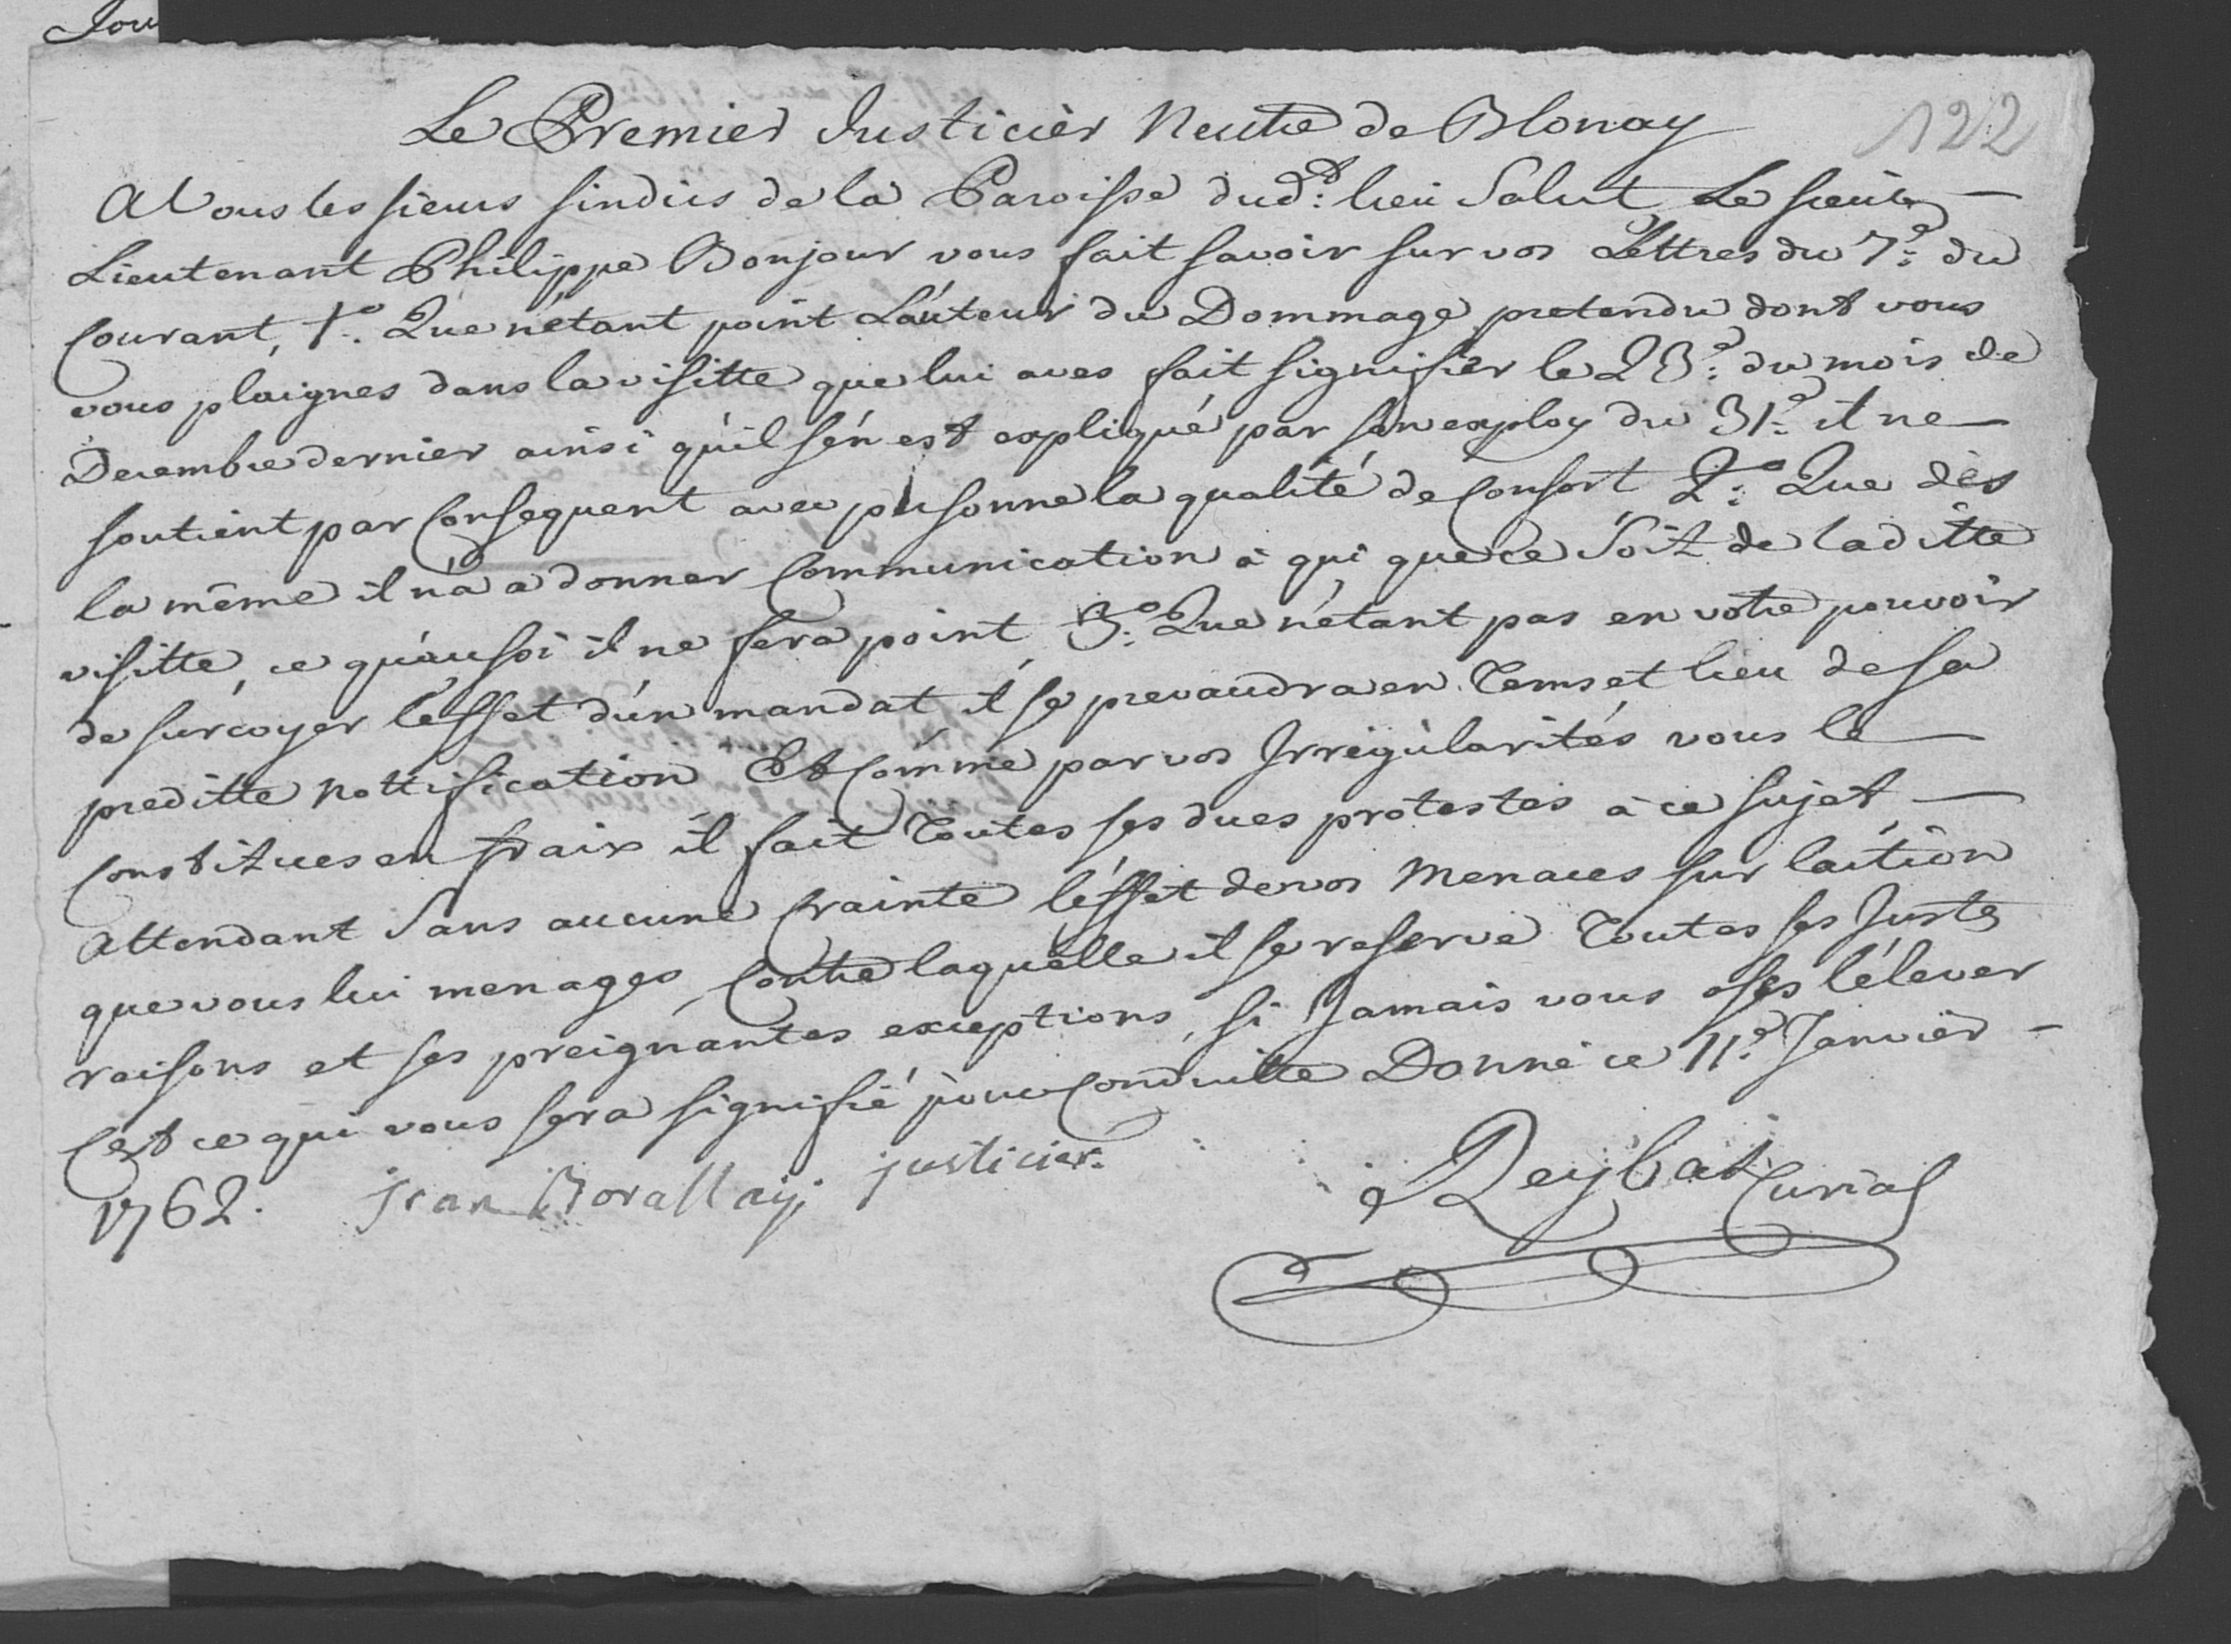 Jou
122
Le Premier Justicier Neutre de Blonay
A Vous les sieurs sindics de la Paroisse dud.t lieu Salut Le sieur
Lieutenant Philippe Bonjour vous fait savoir sur vos Lettres du 7.e du
Courant, 1.o Que n'étant point L'auteur du Dommage pretendu dont vous
vous plaignes dans la visitte que lui aves fait signifier le 23.e du mois de
Decembre dernier ainsi qu'il s'en est expliqué par son exploy du 31.e il ne
soutient par Consequent avec personne la qualité de Consort, 2.o Que dès
la même il n'a a donner Communication à qui que ce Soit de laditte
visitte, ce qu'aussi il ne fera point, 3.o Que n'étant pas en votre pouvoir
de surçoyer l'effet d'un mandat il se prevaudra en Tems et lieu de sa
preditte nottification Et Comme par vos Irregularités vous le
Constitues en fraix il fait Toutes ses dues protestes à ce sujet,
Attendant Sans aucune Crainte l'éffet de vos Menaces sur l'action
que vous lui menages, Contre laquelle il se reserve Toutes ses Justes
raisons et ses preignantes exceptions, si Jamais vous oses l'élever
C'est ce qui vous sera signifié pour Conduitte Donné ce 11.e Janvier
1762. jean Borallay justicier.
Deybat Curial